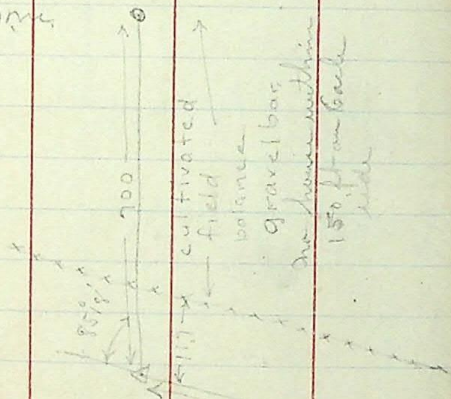 700
cultivated
field
balance
gravel bar,
no house within
150 ft on each
side
117